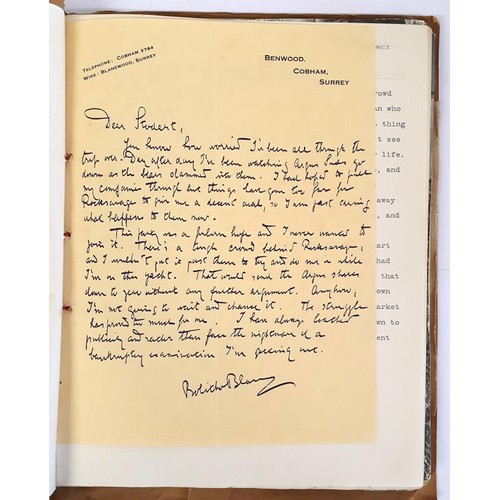 TELEPHONE: COBHAM 2764
WIRE: BLANEWOOD, SURREY
BENWOOD.
COBHAM,
SURREY
Dear Stodart,
You know how worried I've been all through the
trip over. Day after day I've been watching Argus Suds go
down as the bears slammed into them. I had hoped to pull
my companies through but things have gone too far for
Rocksavage to give me a decent deal, so I am past caring
what happens to them now.
This party was a forlorn hope and I never wanted to
join it. There's a tough crowd behind Rocksavage,
and I wouldn't put it past them to try and do me in while
I'm on this yacht. That would send the Argus shares
down to zero without any further argument. Anyhow,
I'm not going to wait and chance it. The struggle
has proved too much for me. I have always loathed
publicity and rather than face the nightmare of a
bankruptcy examination I'm getting out.
Bolitho Blane
rowd
an who
thing
t see
life.
, and
away
, and
art
had
that
own
arket
wn to
ent